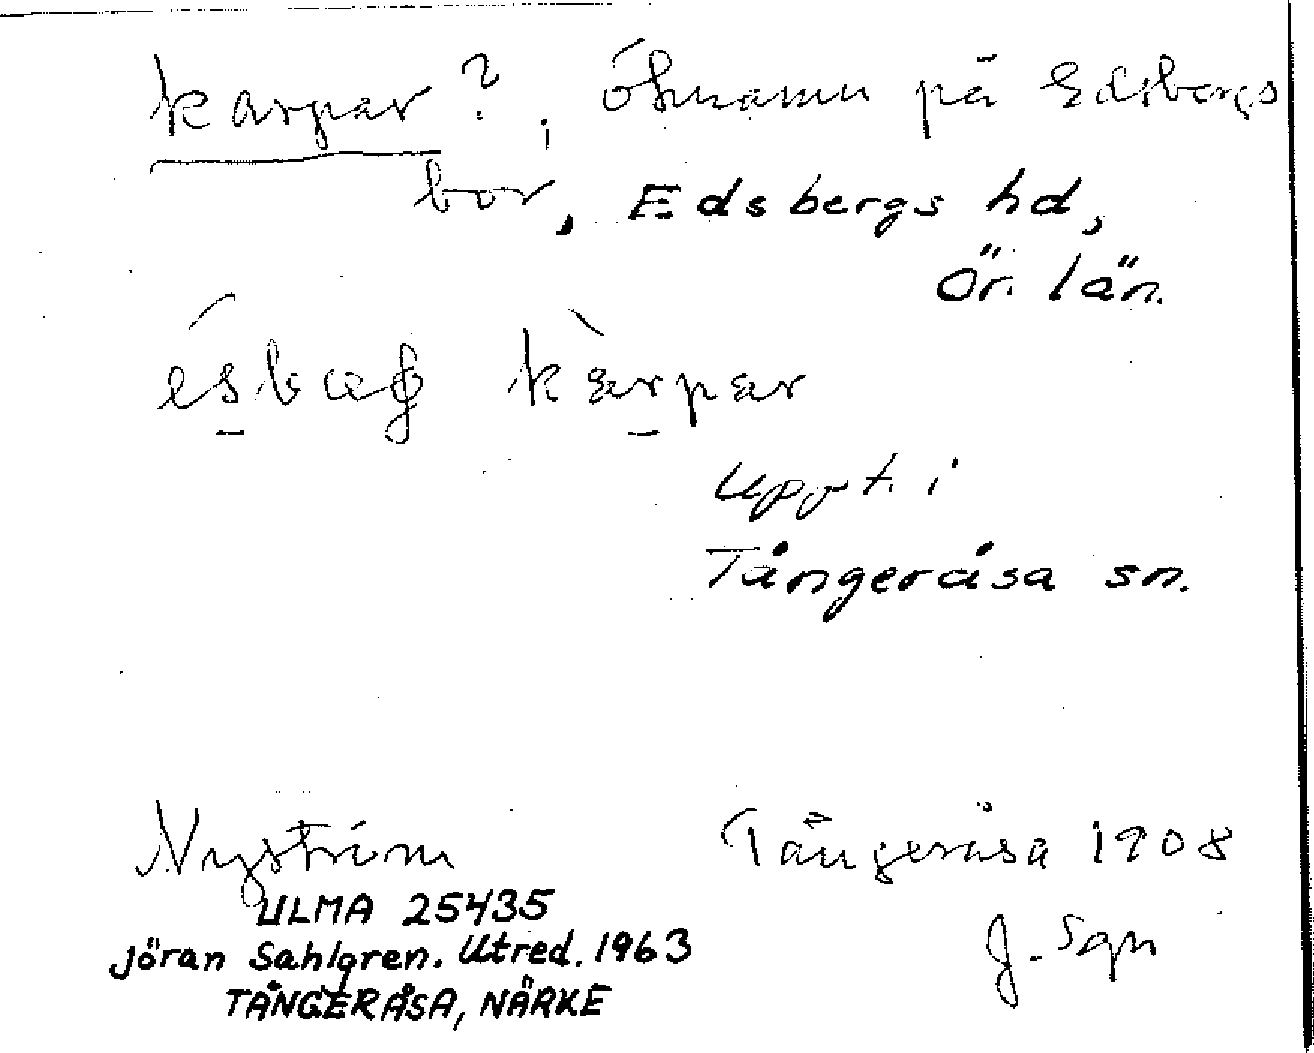 karpar?, öknamn på Edsbergs
bor, Edsbergs hd,
Ör. län.
kærpær
Uppt. i
Tångeråsa sn.
Nyström Tångeråsa 1908
ULMA 25435 J. Sgn
Jöran Sahlgren. Utred. 1963
TÅNGERÅSA, NÄRKE